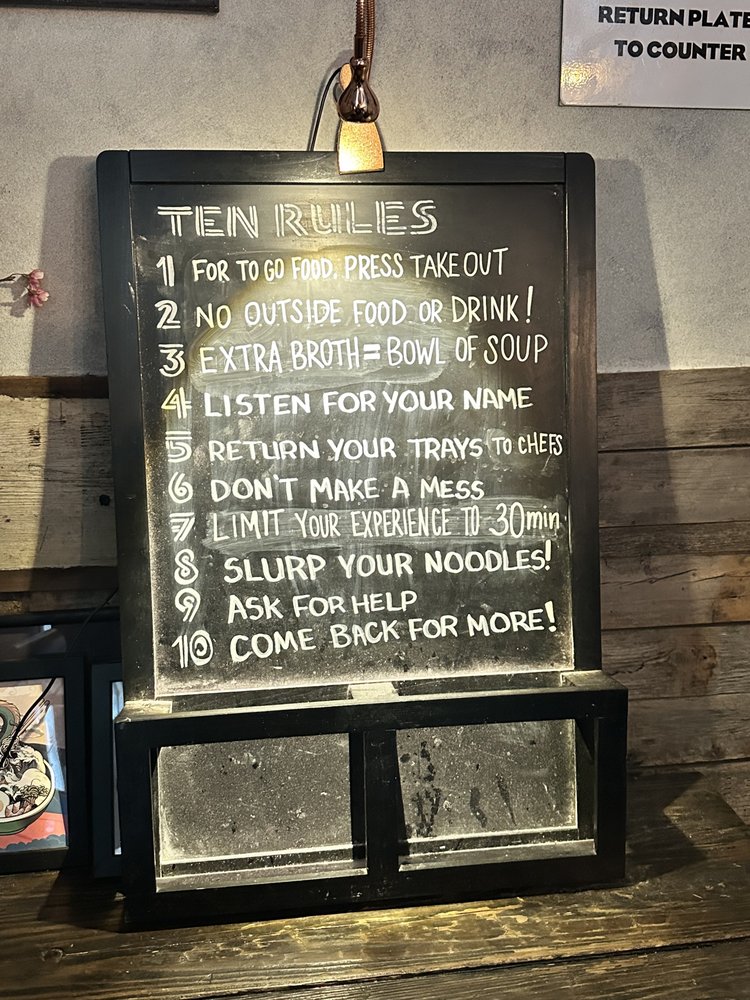 RETURN PLATE
TO COUNTER
TEN RULES
1 FOR TO GO FOOD, PRESS TAKE OUT
2 NO OUTSIDE FOOD OR DRINK!
3 EXTRA BROTH = BOWL OF SOUP
4 LISTEN FOR YOUR NAME
5 RETURN YOUR TRAYS TO CHEFS
6 DON'T MAKE A MESS
7 LIMIT YOUR EXPERIENCE TO 30min
8 SLURP YOUR NOODLES!
9 ASK FOR HELP
10 COME BACK FOR MORE!